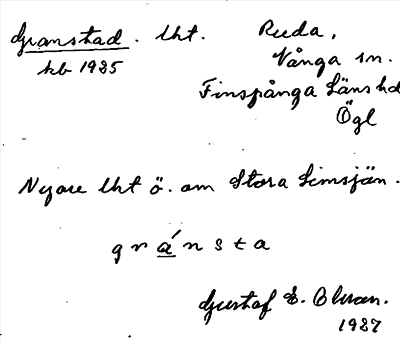 Granstad. lht. Ruda,
kb 1925 Vånga sn.
Finspånga länshd
Ögl
Nyare lht ö. om Stora Limsjön.
g r á n s t a
Gustaf E. Olsson.
1927